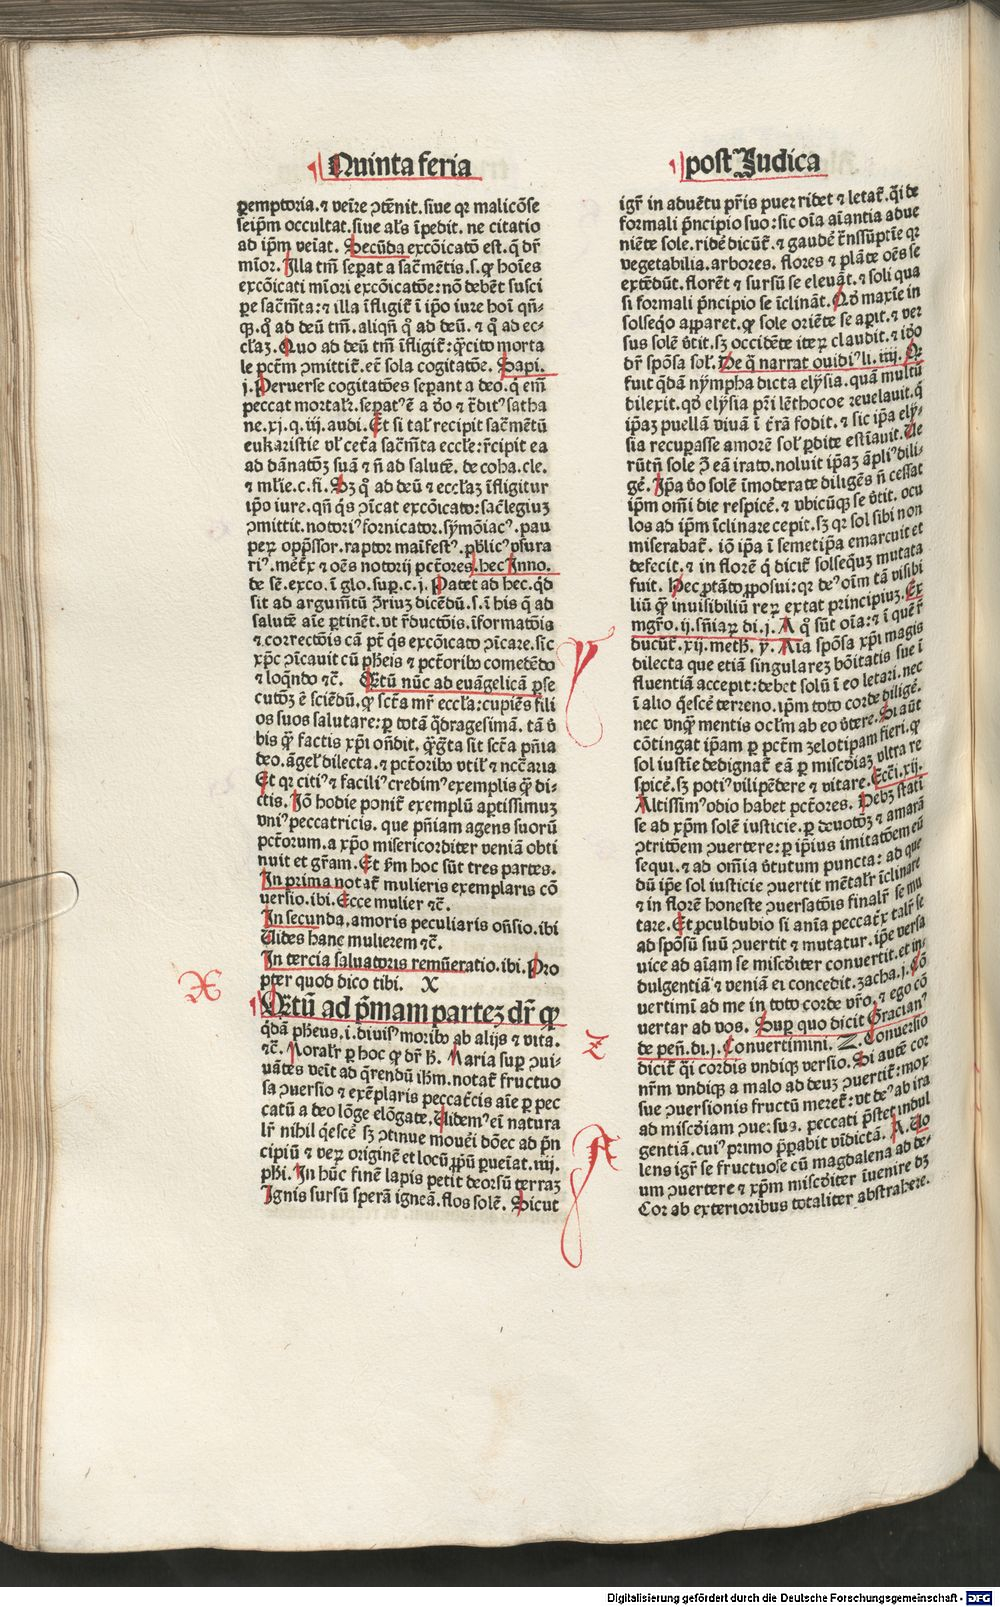 Quinta feria
ꝑemptoria. ⁊ veīre ꝯtēnit. siue qꝛ malicōse
seip̄m occultat. siue al's īpedit. ne citatio
ad ip̄m veīat. Secūda excōicatō est. q̄ dr̄
mīor. Illa tm̄ seꝑat a sac̄mētis. s. ꝙ hoīes
excōicati mīori excōicatōe: nō debēt susci
ꝑe sac̄mta: ⁊ illa īfligit̄ ī ip̄o iure hoī qn̄-
ꝗ. ꝙ ad deū tm̄. aliqn̄ ꝙ ad deū. ⁊ ꝙ ad ec-
clꝫ. Quo ad deū tm̄ īfligit̄: q̄cito morta
le pctm̄ ꝯmittit̄. et̄ sola cogitatōe. Sapi.
j. Peruerse cogitatōes seꝑant a deo. q̄ em̄
peccat mortalr̄. seꝑatꝰ ē a ꝺo ⁊ t̄ditꝰ satha
ne. xj. q. iij. audi. Et si tal' recipit sac̄mētū
eukaristie vl' cet̄a sac̄mta eccl'e: r̄cipit ea
ad dānatōꝫ suā ⁊ n̄ ad salutē. de coha. cle.
⁊ ml'ie. c. fi. Sꝫ ꝙ ad deū ⁊ eccl'aꝫ īfligitur
ipo iure. qn̄ q̄s ꝯīcat excōicato: sac̄legiuꝫ
ꝯmittit. notoriꝰ fornicator. symōiacꝰ. pau
peꝝ opp̄ssor. raptor maīfestꝰ. pb'licꝰ vsura
riꝰ. met̄x ⁊ oēs notorij pct̄ores. hec Inno.
de sē. exco. ī glo. suꝑ. c. j. Patet ad hec. qd
sit ad argumtū ꝯriuꝫ dicēdū. s. ī his q̄ ad
salutē aīe ꝑtinēt. vt r̄ductōis. īformatōis
⁊ correctōis cā pt̄ q̄s excōicato ꝯīcare. sic
xp̄c ꝯīcauit cū ph'eis ⁊ pct̄oribꝰ comedēdo
⁊ loq̄ndo ⁊c̄. Qꝫtū nūc ad euāgelicā ꝑse
cutōꝫ ē sciēdū. ꝙ sct̄a mr̄ eccl'a: cupiēs fili
os suos salutare: ꝑ totā q̄dragesimā. tā ꝟ
bis ꝙ̄ factis xp̄i on̄dit. q̄ꝫta sit sct̄a pn̄ia
deo. āgel' dilecta. ⁊ pct̄oribꝰ vtil' ⁊ nc̄caria
Et qꝛ citiꝰ ⁊ faciliꝰ credimꝰ exemplis ꝙ̄ di-
ctis. Iō hodie ponit̄ exemplū aptissimuꝫ
vniꝰ peccatricis. que pn̄iam agens suorū
pct̄orum. a xp̄o misericorditer veniā obti
nuit et gr̄am. Et ẜm hoc sūt tres partes.
In prima notat̄ mulieris exemplaris cō
uersio. ibi. Ecce mulier ⁊c̄.
In secunda. amoris peculiaris on̄sio. ibi
Uides hanc mulierem ⁊c̄.
In tercia saluatoris remūeratio. ibi. Pro
pter quod dico tibi. X
Qꝫtū ad p̄mam partez dr̄ ꝙ
q̄dā ph'eus. i. diuisꝰ moribꝰ ab alijs ⁊ vita.
⁊c̄. Moralr̄ ꝑ hoc ꝙ dr̄ h'. Maria suꝑ ꝯui-
uātes veīt ad q̄rendū ih'm. notat̄ fructuo
sa ꝯuersio ⁊ exēplaris peccat̄cis aīe ꝑ pec
catū a deo lōge elōgate. Uidemꝰ eī natura
lr̄ nihil q̄escē sꝫ ꝯtinue mouēi dōec ad p̄n
cipiū ⁊ veꝝ originē et locū ꝓpū ꝑueīat. iiij.
ph'i. In hūc finē lapis petit deorsū terraꝫ
Ignis sursū sperā igneā. flos solē. Sicut
X
post Judica
igr̄ in aduētu pr̄is puer ridet ⁊ letat̄. q̄i de
formali p̄ncipio suo: sic oīa aīantia adue
niēte sole. ridē dicūt̄. ⁊ gaudē t̄nssūptīe qꝛ
vegetabilia. arbores. flores ⁊ plāte oēs se
extēdūt. florēt ⁊ sursū se eleuāt. ⁊ soli qua
si formali p̄ncipio se īclināt. Qꝺ maxīe in
solseq̄o apparet. ꝙ sole oriēte se aꝑit. ⁊ ver
sus solē ꝟtit. sꝫ occidēte iteꝝ claudit. ⁊ iꝺo
dr̄ spōsa sol'. De q̄ narrat ouidiꝰ li. iiij. Qꝛ
fuit q̄dā nympha dicta elysia. quā multū
dilexit. qꝺ elysia pr̄i lēthocoe reuelauit. q̄
ip̄aꝫ puellā viuā ī t̄rā fodit. ⁊ sic ip̄a ely-
sia recuꝑasse amorē sol' ꝑdite estīauit. Ue
rūtn̄ sole ꝯ eā irato. noluit ip̄aꝫ āpliꝰ dili-
gē. Ip̄a ꝟo solē īmoderate diligēs n̄ cessat
ip̄m om̄i die respicē. ⁊ vbicūqꝫ se ꝟtit. ocu
los ad ip̄m īclinare cepit. sꝫ qꝛ sol sibi non
miserabat̄. iō ip̄a ī semetip̄a emarcuit et
defecit. ⁊ in florē q̄ dicit̄ solsequꝫ mutata
fuit. Hec ꝓtāto ꝓposui: qꝛ deꝰ oīm tā visibi
liū ꝙ̄ inuisibiliū reꝝ extat principiuꝫ. Ex
mgr̄o. ij. sn̄iaꝝ di. j. A ꝙ sūt oīa: ⁊ ī quē r̄
ducūt̄. xij. meth'. y. Aīa spōsa xp̄i magis
dilecta que etiā singularez bōitatis sue ī
fluentiā accepit: debet solū ī eo letari. nec
ī alio q̄escē terreno. ip̄m toto corde diligē.
nec vnq̄ mentis ocl'm ab eo ꝟtere. Si aūt
cōtingat ip̄am ꝑ pctm̄ zelotipam fieri. ꝙ
sol iustīe dedignat̄ eā ꝑ miscꝺiaꝫ vltra re
spicē. sꝫ potiꝰ vilipēdere ⁊ vitare. Ecc̄i. xij.
Altissimꝰ odio habet pct̄ores. Debꝫ stati
se ad xp̄m solē iusticie. ꝑ deuotōꝫ ⁊ amarā
ꝯtritōem ꝯuertere: ꝑ ip̄ius imitatōem eū
sequi. ⁊ ad om̄ia ꝟtutum puncta: ad que
dū ip̄e sol iusticie ꝯuertit mētalr̄ īclinare
⁊ in florē honeste ꝯuersatōis finalr̄ se mu
tare. Et ꝓculdubio si aīa peccat̄x talr̄ se
ad spōsū suū ꝯuertit ⁊ mutatur. ip̄e versa
vice ad aīam se miscꝺiter conuertit. et in-
dulgentiā ⁊ veniā ei concedit. zacha. j. Cō
uertimi ad me in toto corde vr̄o. ⁊ ego cō
uertar ad vos. Suꝑ quo dicit Gracianꝰ
de pen̄. di. j. Conuertimini. Z. Conuersio
dicit̄ q̄i cordis vndiqꝫ versio. Si autē cor
nr̄m vndiqꝫ a malo ad deuꝫ ꝯuertit̄: mox
sue ꝯuersionis fructū meret̄: vt deꝰ ab ira
ad miscꝺiam ꝯuersus. peccati p̄stet indul
gentiā. cuiꝰ primo p̄ꝑabit vīdictā. A. Uo
lens igr̄ se fructuose cū magdalena ad de-
um ꝯuertere ⁊ xp̄m miscꝺiter īuenire dꝫ
Cor ab exterioribus totaliter abstrahere.
Y
Z
A
Digitalisierung gefördert durch die Deutsche Forschungsgemeinschaft - DFG